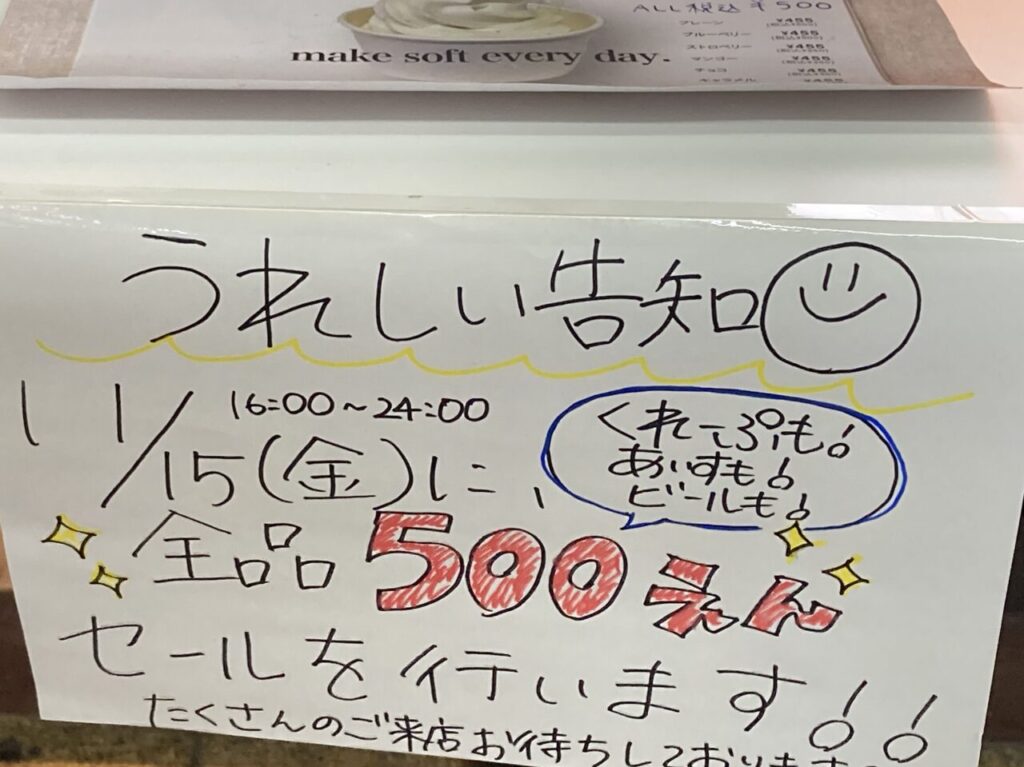 ALL税込¥500
プレーン ¥455
(税込¥500)
ブルーベリー ¥455
(税込¥500)
ストロベリー ¥455
(税込¥500)
マンゴー ¥455
(税込¥500)
チョコ ¥455
(税込¥500)
キャラメル ¥455
make soft every day.
うれしい告知
16:00~24:00
11/15(金)に、
くれーぷも!
あいすも!
ビールも!
全品500えん
セールを行います!!
たくさんのご来店お待ちしております